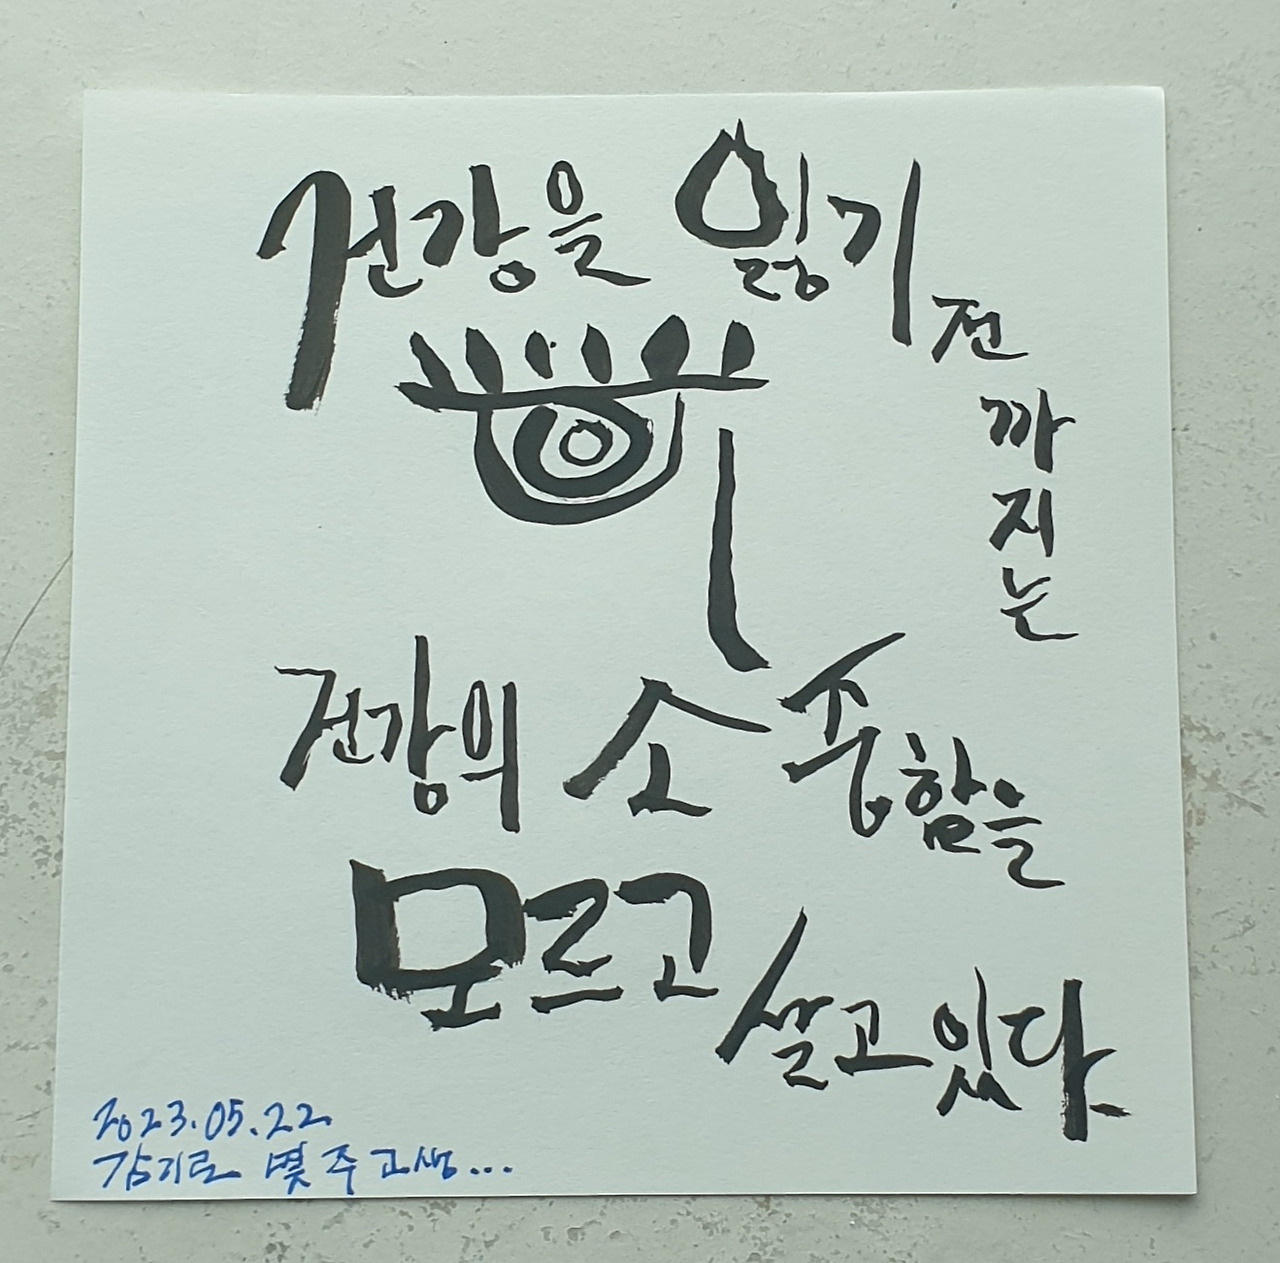 건강을 잃기
전
까
지
는
건강의 소중함을
모르고
살고 있다.
2023.05.22.
감기로 몇 주 고생...